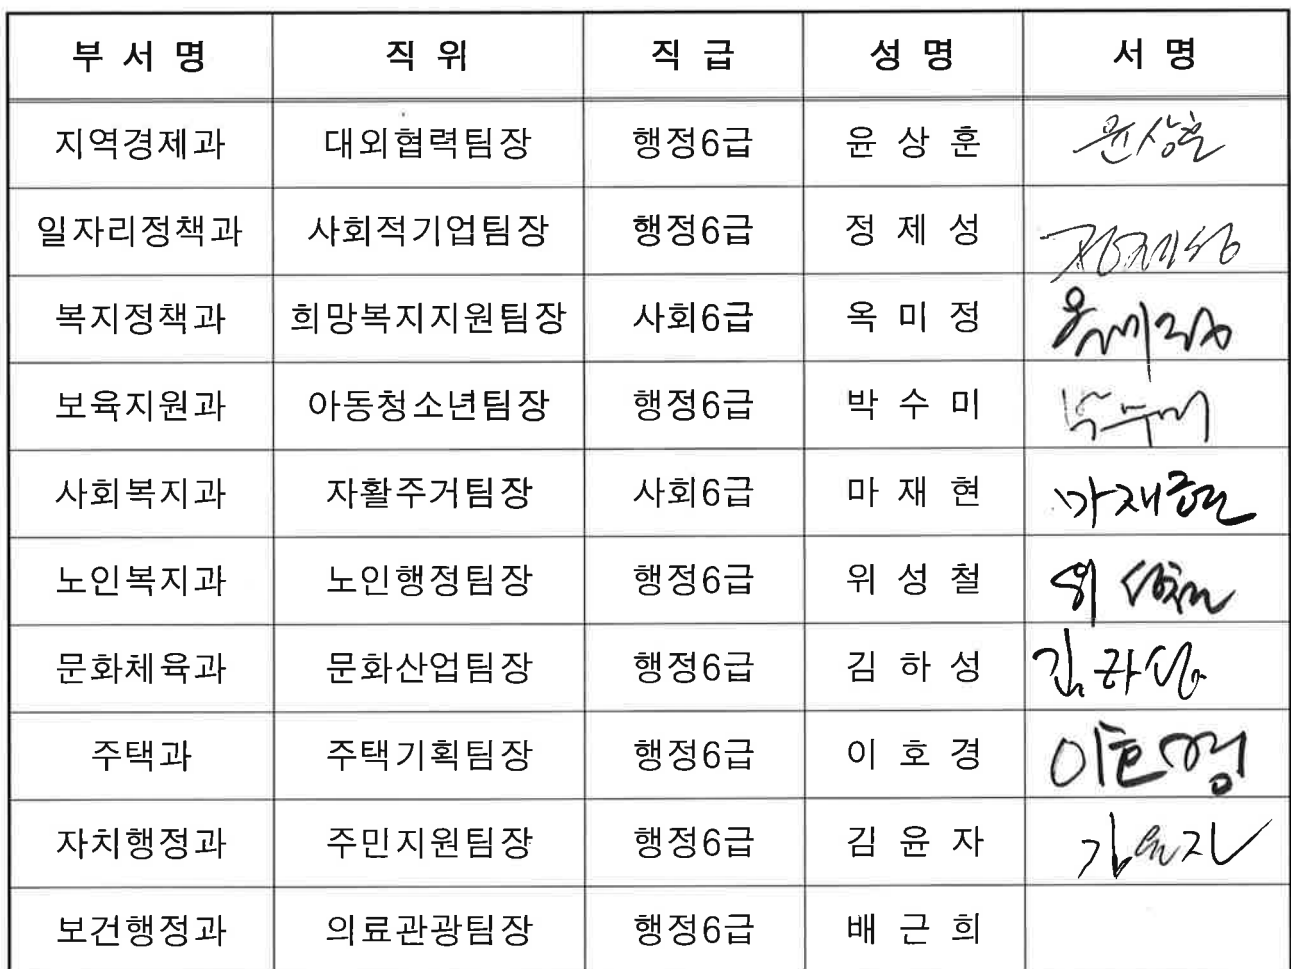 부 서 명 직 위 직 급 성 명 서 명
지역경제과 대외협력팀장 행정6급 윤 상 훈 윤상훈
일자리정책과 사회적기업팀장 행정6급 정 제 성 정제성
복지정책과 희망복지지원팀장 사회6급 옥 미 정 옥미정
보육지원과 아동청소년팀장 행정6급 박 수 미 박수미
사회복지과 자활주거팀장 사회6급 마 재 현 마재현
노인복지과 노인행정팀장 행정6급 위 성 철 위성철
문화체육과 문화산업팀장 행정6급 김 하 성 김하성
주택과 주택기획팀장 행정6급 이 호 경 이호경
자치행정과 주민지원팀장 행정6급 김 윤 자 김윤자
보건행정과 의료관광팀장 행정6급 배 근 희